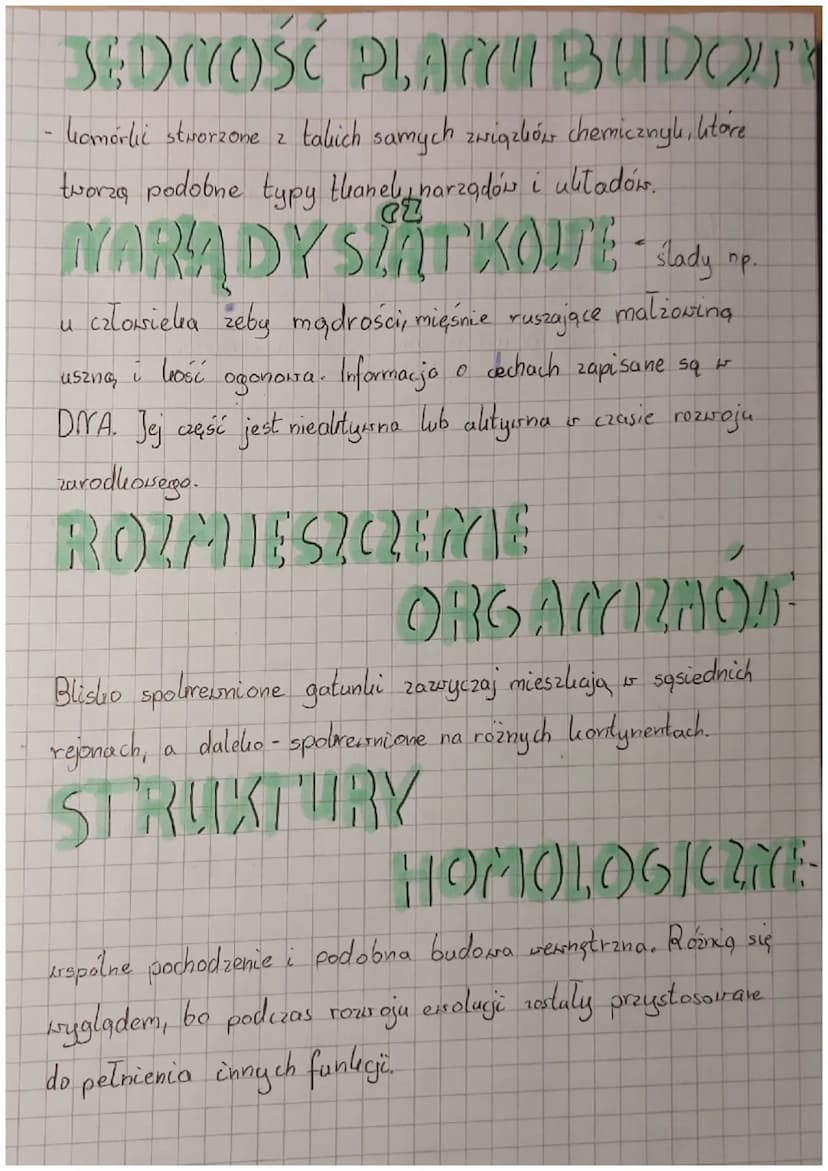 JEDNOŚĆ PLANU BUDOWY
- komórki stworzone z takich samych związków chemicznyh, które
tworzą podobne typy tkanek, narządów i układów.
NARĄDY SZCZĄTKOWE - ślady np.
u człowieka zeby mądrości, mięśnie ruszające małżowiną
uszną, i kość ogonowa. Informacja o cechach zapisane są w
DNA. Jej część jest nieaktywna lub aktywna w czasie rozwoju
zarodkowego.
ROZMIESZCZENIE
ORGANIZMÓW-
Blisko spokrewnione gatunki zazwyczaj mieszkają w sąsiednich
rejonach, a daleko - spokrewnione na różnych kontynentach.
STRUKTURY
HOMOLOGICZNE-
wspólne pochodzenie i podobna budowa wewnętrzna. Różnią się
wyglądem, bo podczas rozwoju ewolucji zostały przystosowane
do pełnienia innych funkcji.